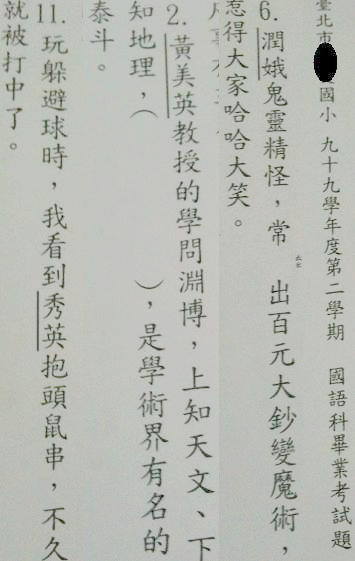 臺北市 國小 九十九學年度第二學期 國語科畢業考試題
6. 潤娥鬼靈精怪，常 ㄊㄠ 出百元大鈔變魔術，
惹得大家哈哈大笑。
2. 黃美英教授的學問淵博，上知天文、下
知地理，（ ），是學術界有名的
泰斗。
11. 玩躲避球時，我看到秀英抱頭鼠串，不久
就被打中了。